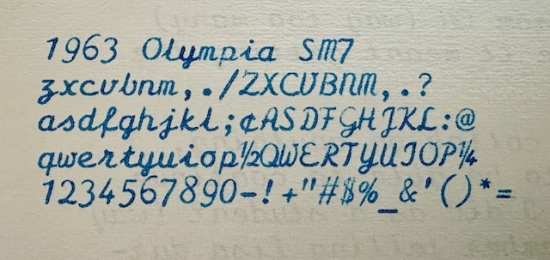 1963 Olympia SM7
zxcvbnm,./ZXCVBNM,.?
asdfghjkl;¢ASDFGHJKL:@
qwertyuiop½QWERTYUIOP¼
1234567890-!+"#$%_&'()*=